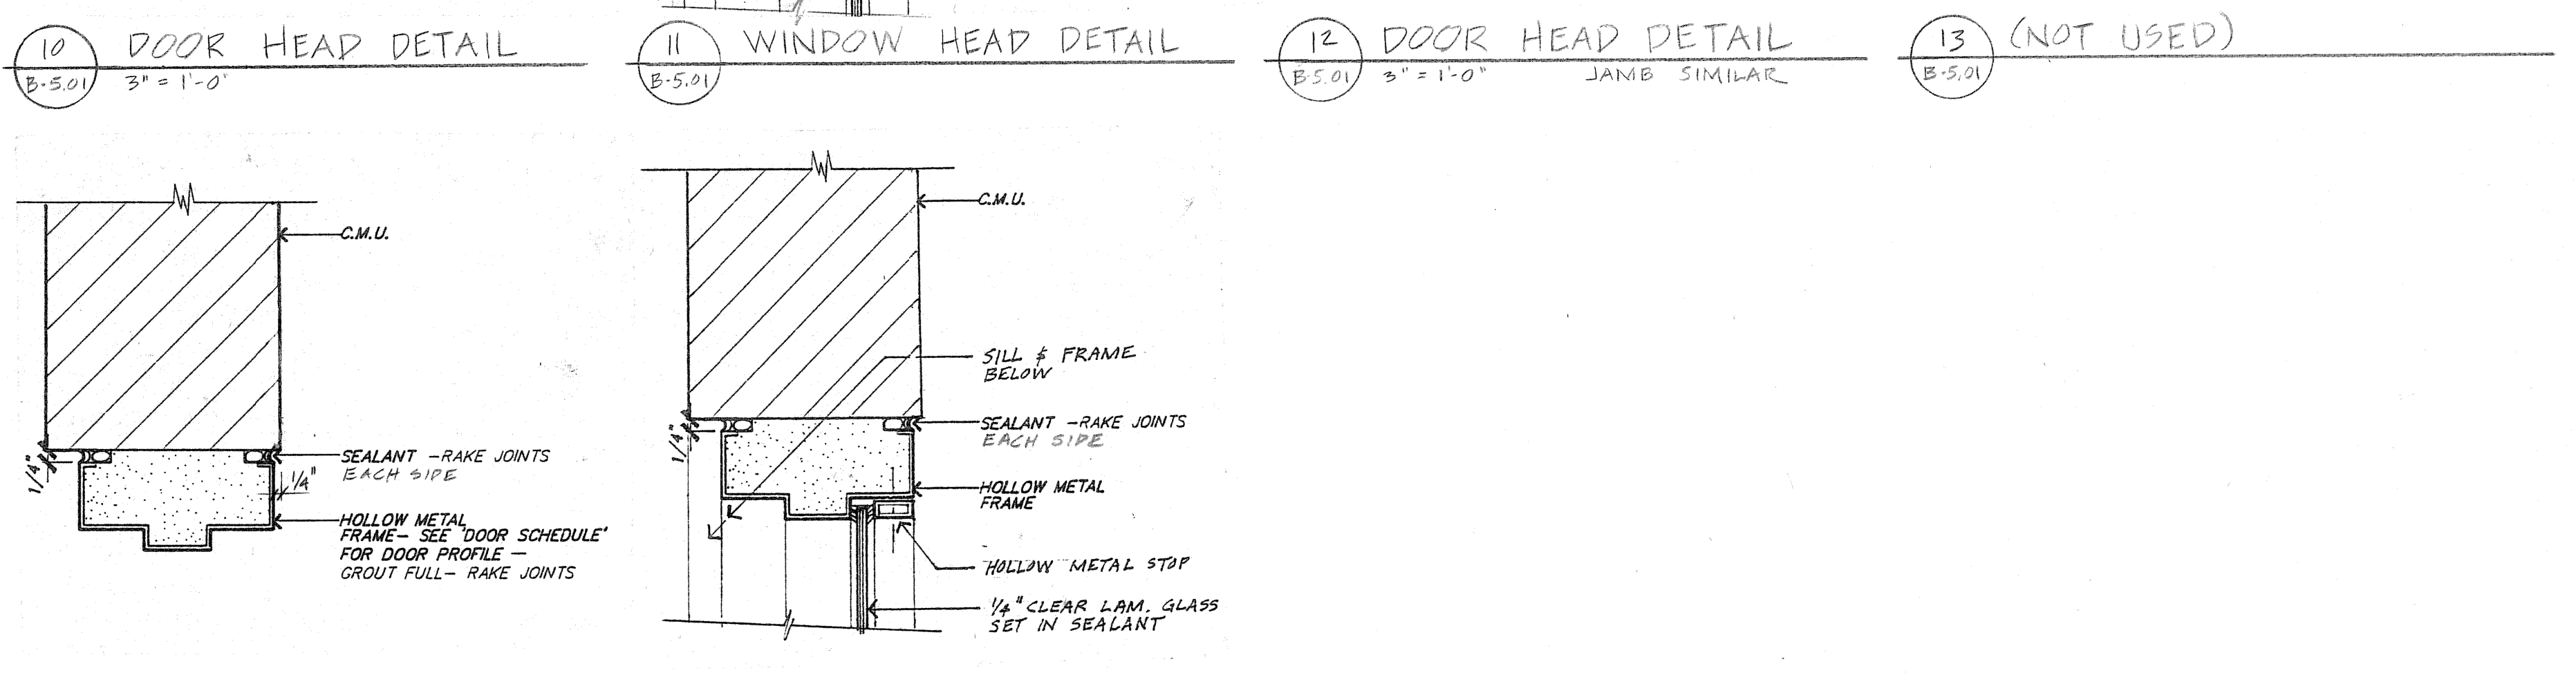 10 DOOR HEAD DETAIL
B-5.01 3" = 1'-0"
11 WINDOW HEAD DETAIL
B-5.01
12 DOOR HEAD DETAIL
B-5.01 3" = 1'-0" JAMB SIMILAR
13 (NOT USED)
B-5.01
C.M.U.
1/4"
SEALANT -RAKE JOINTS
EACH SIDE
1/4"
HOLLOW METAL
FRAME- SEE 'DOOR SCHEDULE'
FOR DOOR PROFILE -
GROUT FULL- RAKE JOINTS
C.M.U.
SILL & FRAME
BELOW
1/4"
SEALANT -RAKE JOINTS
EACH SIDE
HOLLOW METAL
FRAME
HOLLOW METAL STOP
1/4" CLEAR LAM. GLASS
SET IN SEALANT